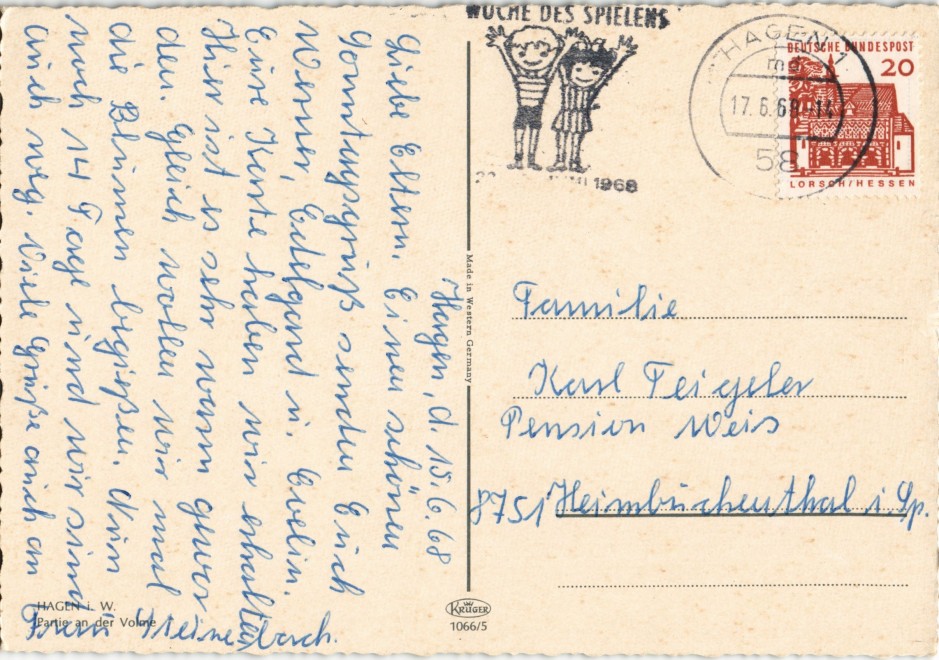 WOCHE DES SPIELENS
1968
HAGEN 1
17.6.68-14
58
DEUTSCHE BUNDESPOST
20
LORSCH/HESSEN
Hagen, d. 15.6.68
Liebe Eltern. Einen schönen
Sonntagsgruß senden Euch
Werner, Edelgard u. Evelin.
Eure Karte haben wir erhalten
Hier ist es sehr warm gewor
den. Gleich wollen wir mal
die Blumen begießen. Nun
noch 14 Tage und wir sind
auch weg. Viele Grüße auch an
Frau Steinebach.
Made in Western Germany
Familie
Karl Teigeler
Pension Weis
8751 Heimbuchenthal i. Sp.
HAGEN i. W.
Partie an der Volme
KRÜGER
1066/5